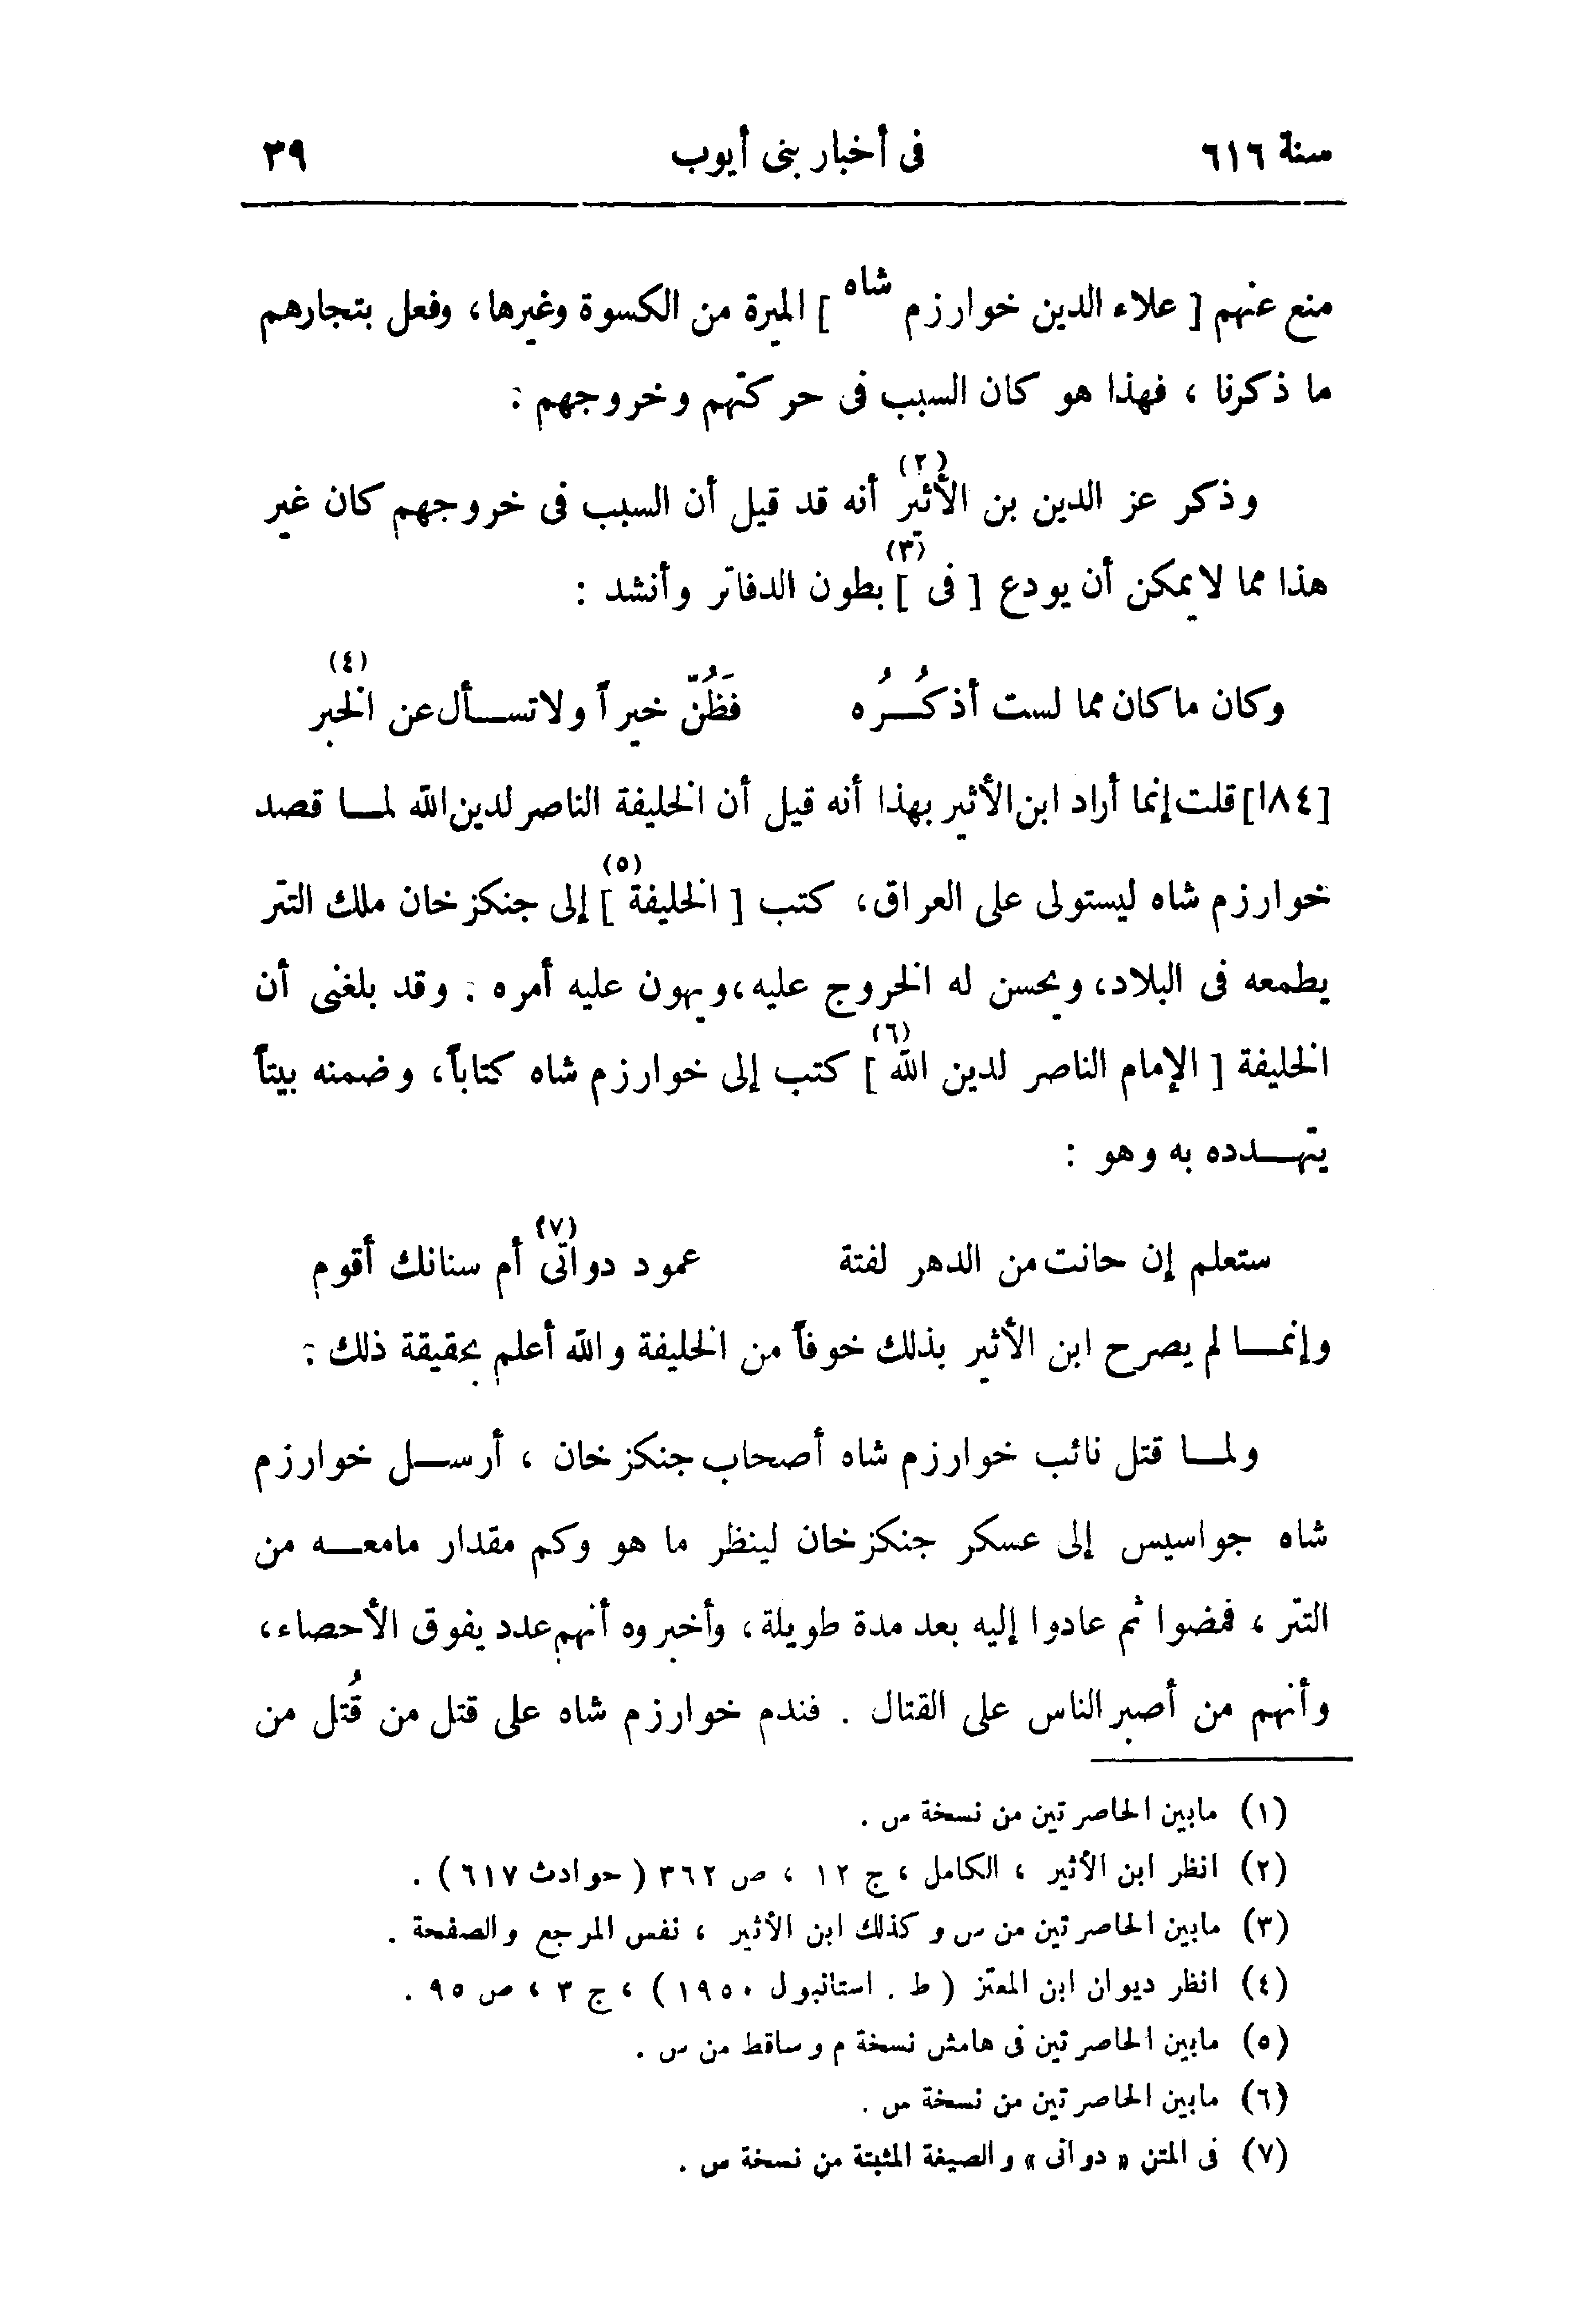 سنة ٦١٦ فى أخبار بنى أيوب ٣٩
منع عنهم [ علاء الدين خوارزم شاه ] الميرة من الكسوة وغيرها، وفعل بتجارهم
ما ذكرنا ، فهذا هو كان السبب فى حركتهم وخروجهم :
وذكر عز الدين بن الأثير (٢) أنه قد قيل أن السبب فى خروجهم كان غير
هذا مما لا يمكن أن يودع [ فى ] (٣) بطون الدفاتر وأنشد :
وكان ما كان مما لست أذكُـــرُه فَظُنّ خيراً ولا تســأل عن الخبر (٤)
[١٨٤ا] قلت إنما أراد ابن الأثير بهذا أنه قيل أن الخليفة الناصر لدين الله لمــا قصد
خوارزم شاه ليستولى على العراق، كتب [ الخليفة ] (٥) إلى جنكزخان ملك التتر
يطمعه فى البلاد، ويحسن له الخروج عليه، ويهون عليه أمره : وقد بلغنى أن
الخليفة [ الإمام الناصر لدين الله ] (٦) كتب إلى خوارزم شاه كتاباً، وضمنه بيتاً
يتهــدده به وهو :
ستعلم إن حانت من الدهر لفتة عمود دواتى (٧) أم سنانك أقوم
وإنمــا لم يصرح ابن الأثير بذلك خوفاً من الخليفة والله أعلم بحقيقة ذلك :
ولمــا قتل نائب خوارزم شاه أصحاب جنكزخان ، أرســل خوارزم
شاه جواسيس إلى عسكر جنكزخان لينظر ما هو وكم مقدار مامعــه من
التتر ، فمضوا ثم عادوا إليه بعد مدة طويلة، وأخبروه أنهم عدد يفوق الأحصاء،
وأنهم من أصبر الناس على القتال . فندم خوارزم شاه على قتل من قُتل من
(١) مابين الحاصرتين من نسخة س .
(٢) انظر ابن الأثير ، الكامل ، ج ١٢ ، ص ٣٦٢ ( حوادث ٦١٧ ) .
(٣) مابين الحاصرتين من س وكذلك ابن الأثير ، نفس المرجع والصفحة .
(٤) انظر ديوان ابن المعتز ( ط . استانبول ١٩٥٠ ) ، ج ٣ ، ص ٩٥ .
(٥) مابين الحاصرتين فى هامش نسخة م وساقط من س .
(٦) مابين الحاصرتين من نسخة س .
(٧) فى المتن « دوآتى » والصيغة المثبتة من نسخة س .